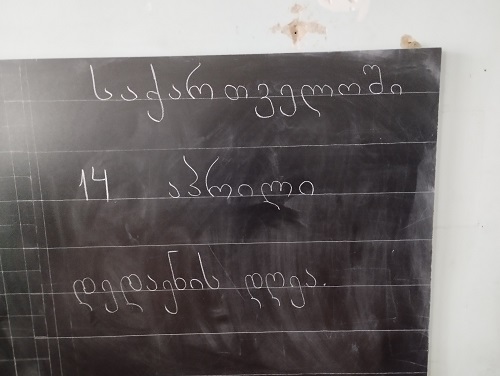 საქართველოში
14 აპრილი
დედაენის დღეა.